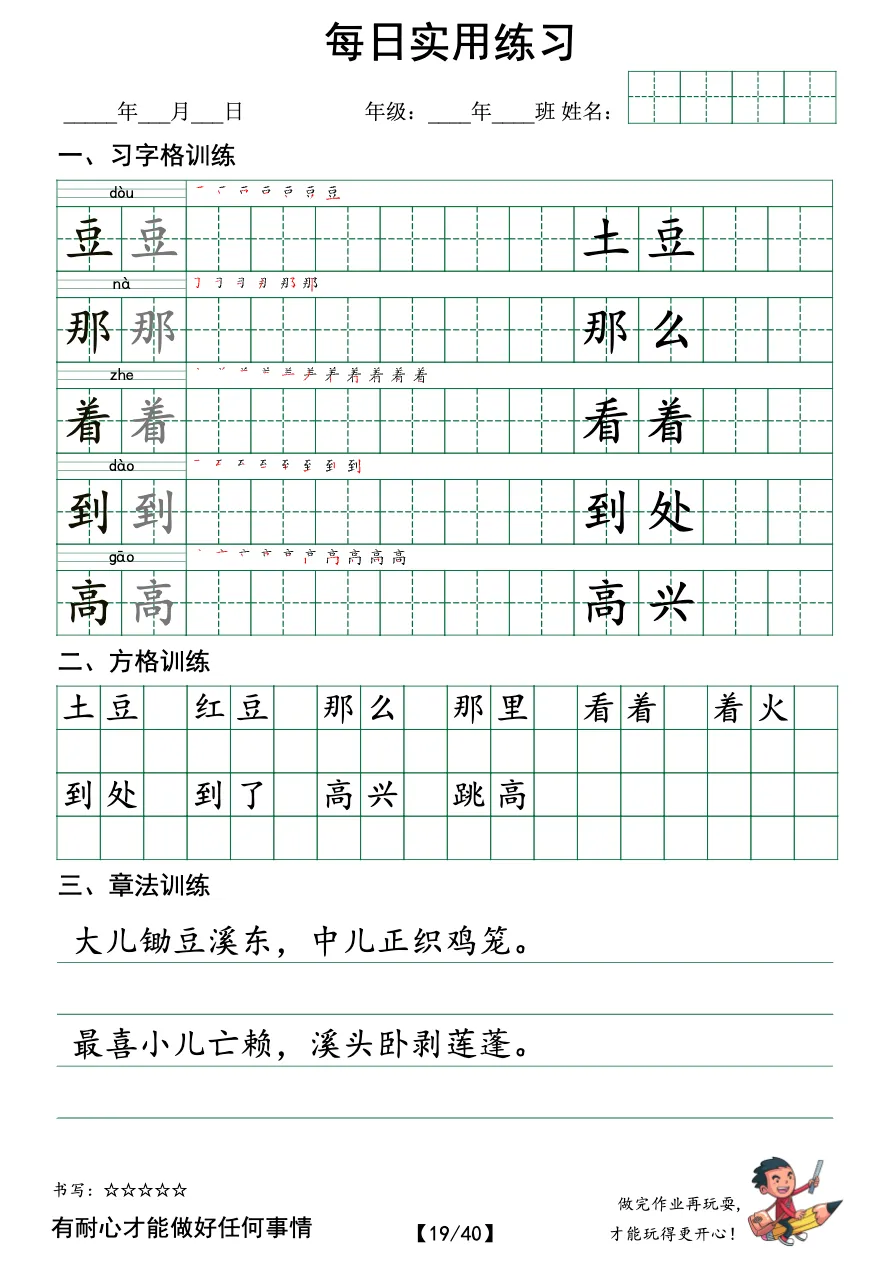 每日实用练习
_____年___月___日 年级：____年____班 姓名：
一、习字格训练
dòu
豆 豆 土 豆
nà
那 那 那 么
zhe
着 着 看 着
dào
到 到 到 处
gāo
高 高 高 兴
二、方格训练
土 豆 红 豆 那 么 那 里 看 着 着 火
到 处 到 了 高 兴 跳 高
三、章法训练
大儿锄豆溪东，中儿正织鸡笼。
最喜小儿亡赖，溪头卧剥莲蓬。
书写：☆☆☆☆☆
有耐心才能做好任何事情
【19/40】
做完作业再玩耍，
才能玩得更开心！